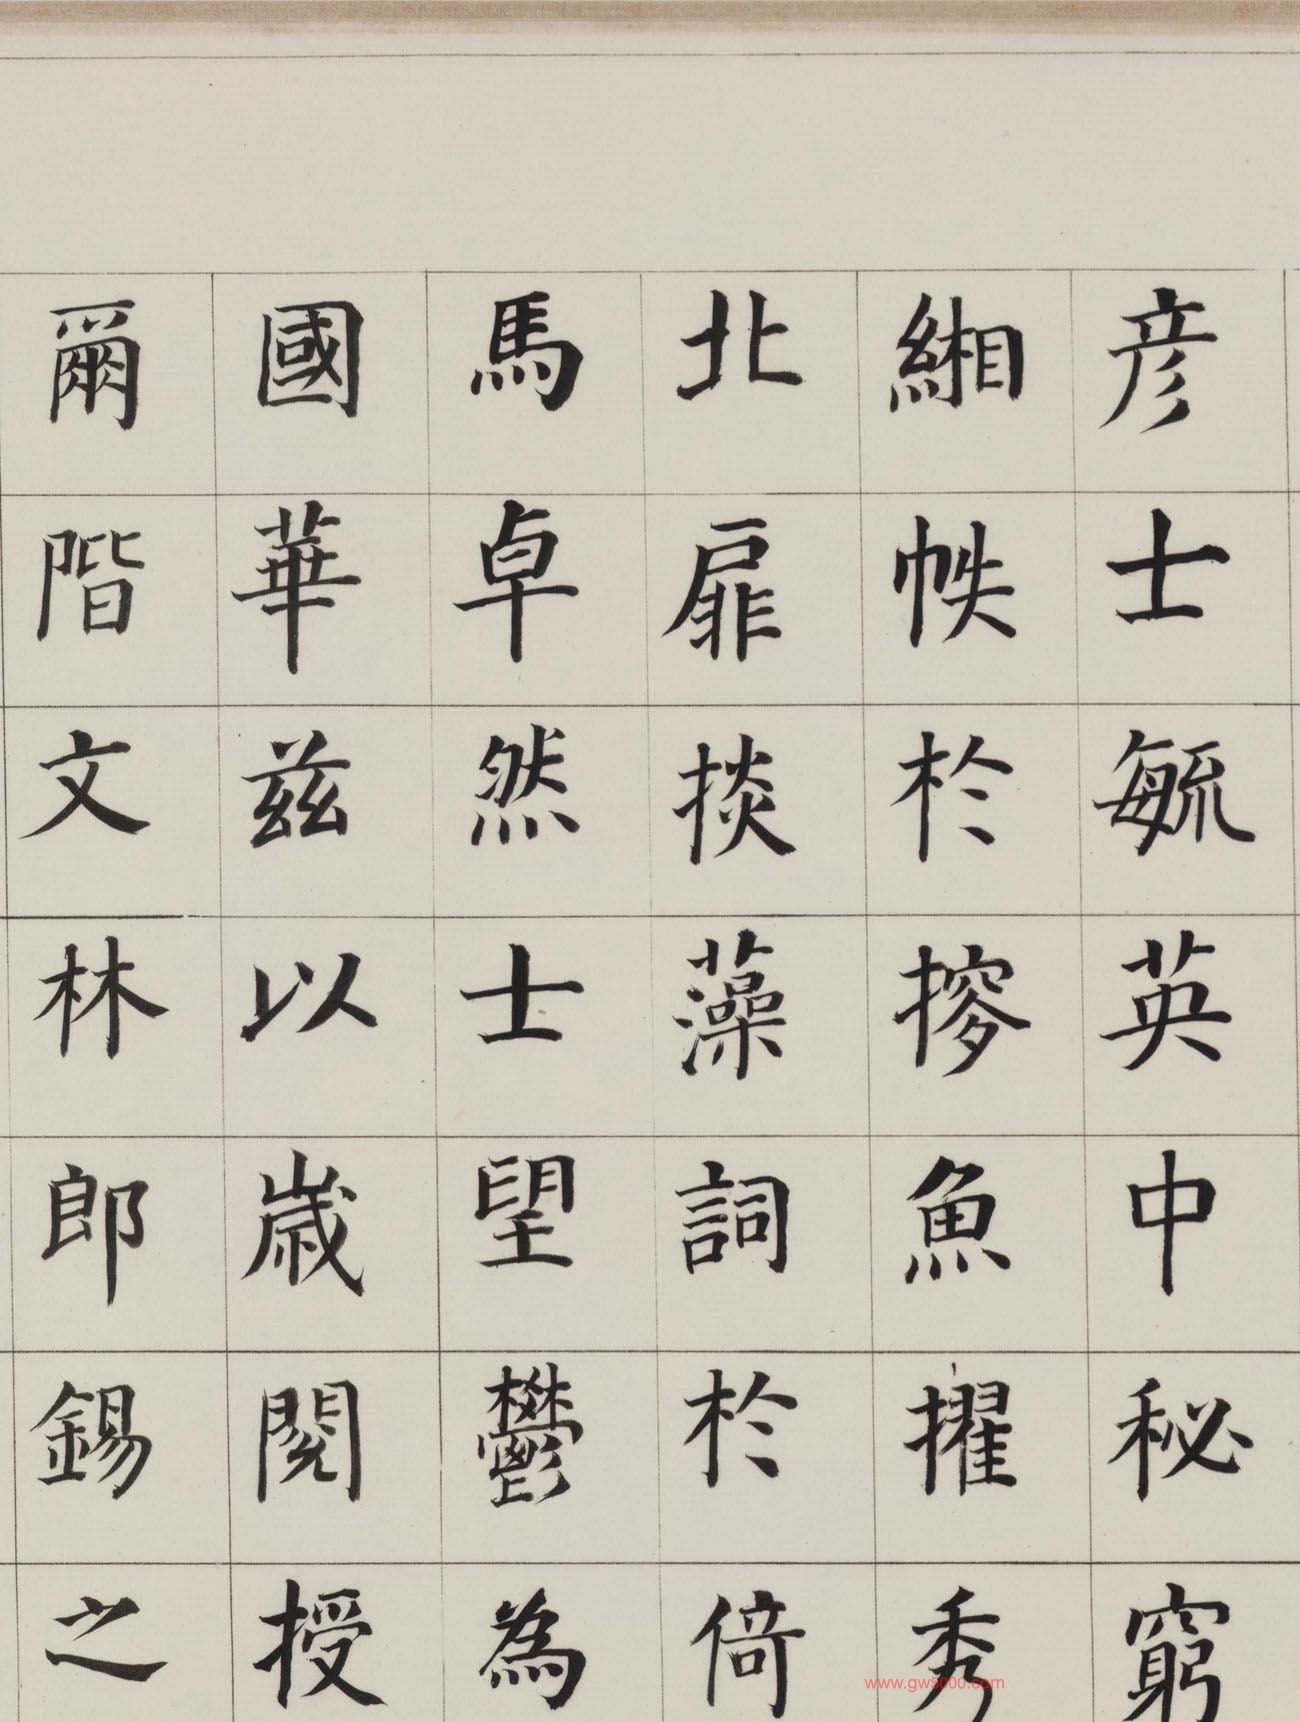 彦士毓英中秘窮
緗帙於摎魚擢秀
北扉掞藻詞於倚
馬卓然士望鬱為
國華兹以歲閱授
爾階文林郎錫之
www.gw5000.com